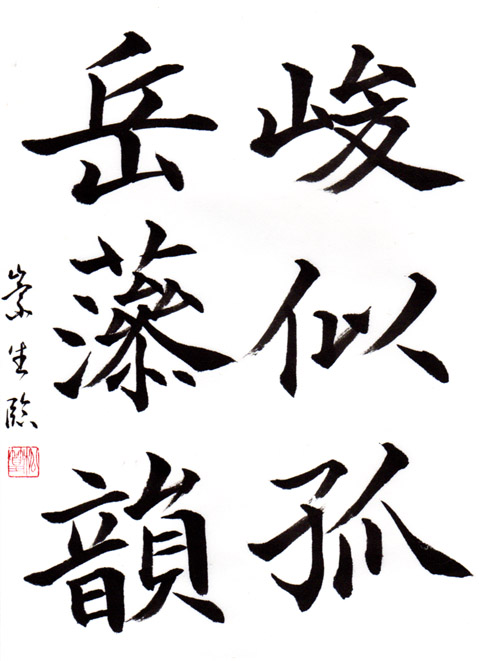 峻似孤
岳藻韻
崇生臨